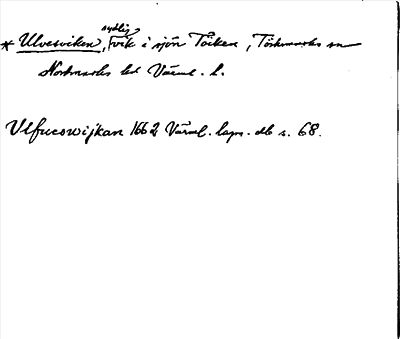 * Ulvesviken, sydlig vik i sjön Töcken, Töcksmarks sn
Nordmarks hd Värml. l.
Ulfueswijkan 1662 Värml. lagm. db s. 68.